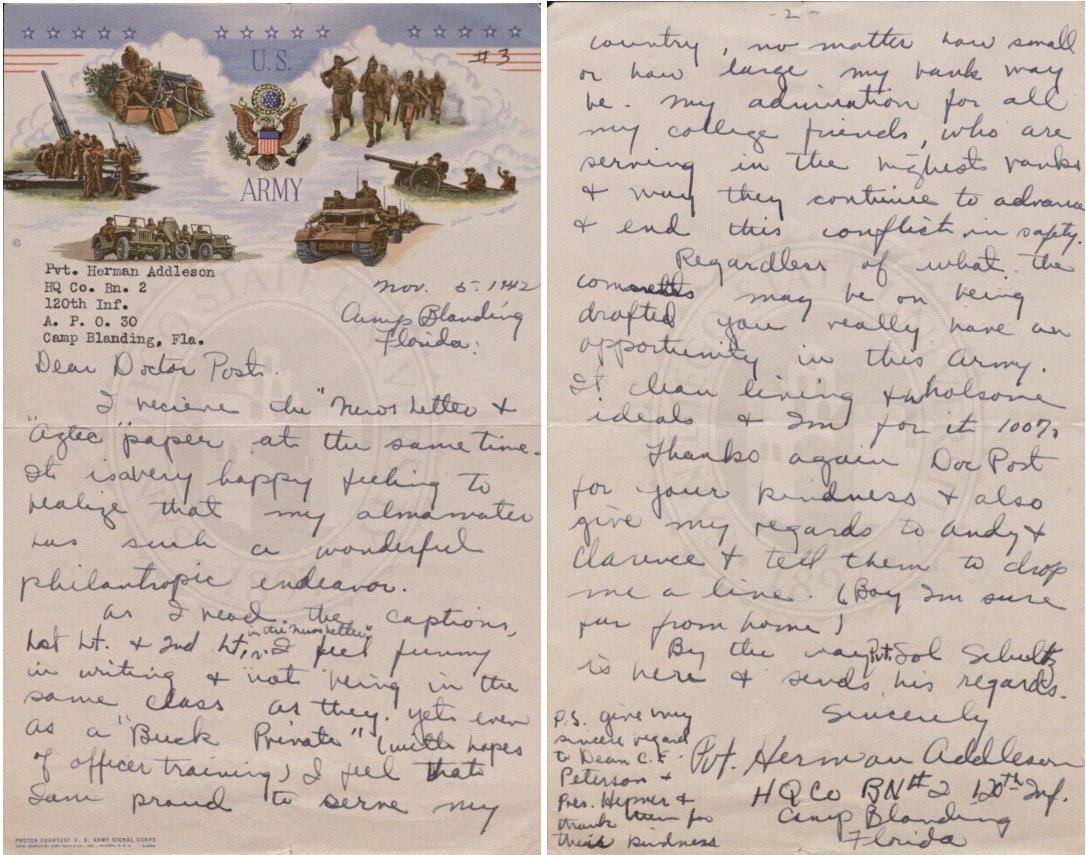 U.S.
ARMY
#3
©
Pvt. Herman Addleson
HQ Co. Bn. 2
120th Inf.
A. P. O. 30
Camp Blanding, Fla.
Nov. 5-1942
Camp Blanding
Florida:
Dear Doctor Post.
I recieve the "News Letter &
"Aztec" paper at the same time.
It is a very happy feeling to
realize that my almamater
has such a wonderful
philantropic endeavor.
As I read the captions,
1st Lt. & 2nd Lt, in the "News Letter" I feel funny
in writing & not being in the
same class as they. yet, even
as a "Buck Private" (with hopes
of officer training) I feel that
I am proud to serve my
PHOTOS COURTESY U. S. ARMY SIGNAL CORPS
- 2 -
country, no matter how small
or how large my rank may
be. My admiration for all
my college friends, who are
serving in the highest ranks
& may they continue to advance
& end this conflict in safety.
Regardless of what the
comments may be on being
drafted you really have an
opportunity in this Army.
It clean living & wholsome
ideals & I'm for it 100%
Thanks again Doc Post
for your kindness & also
give my regards to Andy &
Clarence & tell them to drop
me a line. (Boy I'm sure
far from home)
By the way Pvt. Sol Schultz
is here & sends his regards.
Sincerely
Pvt. Herman Addleson
HQ Co BN #2 120th Inf.
Camp Blanding
Florida
P.S. give my
sincere regard
to Dean C.E.
Peterson &
Pres. Hepner &
thank them for
their kindness